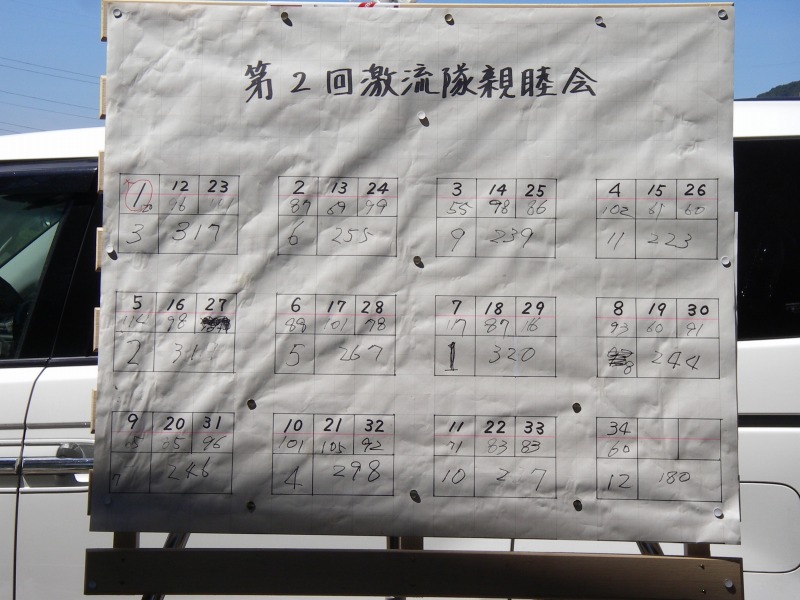 第2回激流隊親睦会
1 12 23 2 13 24 3 14 25 4 15 26
96 111 87 69 99 55 98 86 102 61 60
3 317 6 255 9 239 11 223
5 16 27 6 17 28 7 18 29 8 19 30
114 98 88 101 78 117 87 116 93 60 91
2 5 267 1 320 8 244
9 20 31 10 21 32 11 22 33 34
65 85 96 101 105 92 71 83 83 60
7 246 4 298 10 12 180